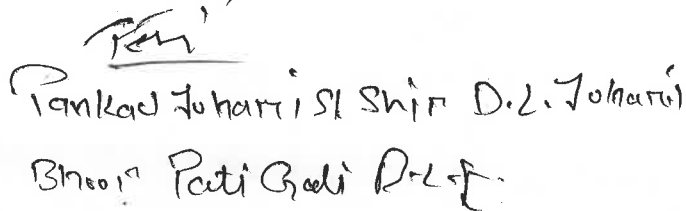 Pankaj Johari S/ Shir D.L. Johari
Bhoor Pati Gadi D.L.F.